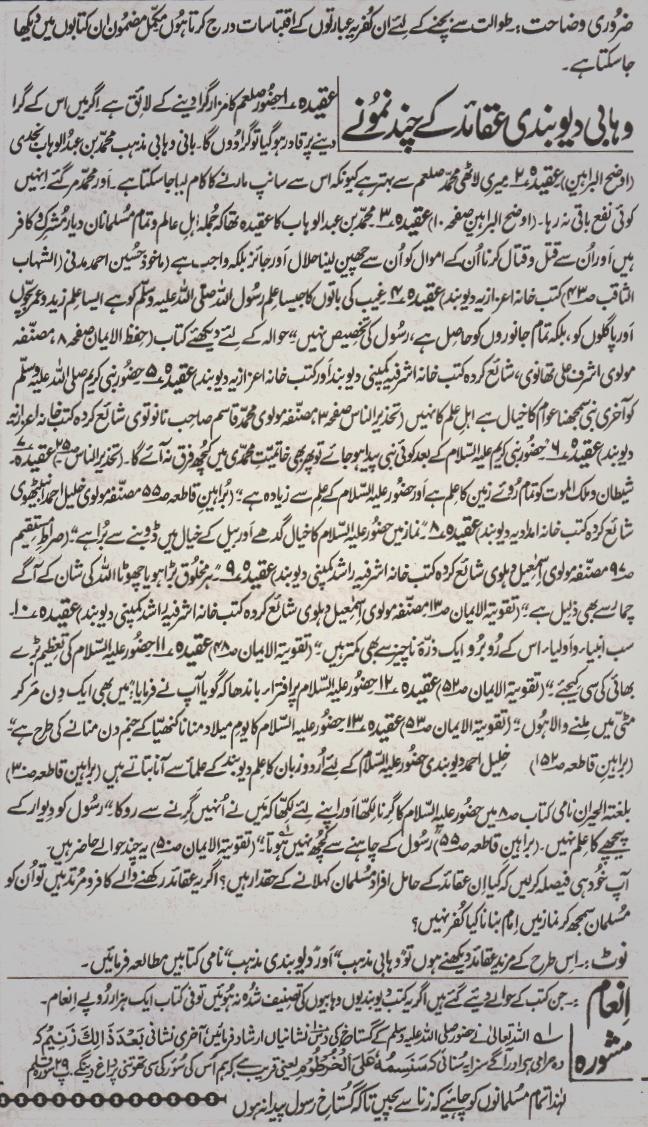 ضروری وضاحت:۔ طوالت سے بچنے کے لئے ان کفریہ عبارتوں کے اقتباسات درج کرتا ہوں مکمل مضمون ان کتابوں میں دیکھا
جا سکتا ہے۔
وہابی دیوبندی عقائد کے چند نمونے
عقیدہ ۱ حضور صلعم کا مزار گرا دینے کے لائق ہے اگر میں اس کے گرا
دینے پر قادر ہو گیا تو گرا دوں گا۔ بانی وہابی مذہب محمد بن عبدالوہاب نجدی
(اوضح البراہین) عقیدہ ۲ میری لاٹھی محمد صلعم سے بہتر ہے کیونکہ اس سے سانپ مارنے کا کام لیا جا سکتا ہے۔ اور محمد مر گئے انہیں
کوئی نفع باقی نہ رہا۔ (اوضح البراہین صفحہ ۱۰) عقیدہ ۳ محمد بن عبدالوہاب کا عقیدہ تھا کہ جملہ اہل عالم و تمام مسلمانان دیار مشرک و کافر
ہیں اور ان سے قتل و قتال کرنا ان کے اموال کو ان سے چھین لینا حلال اور جائز بلکہ واجب ہے (ماخوذ حسین احمد مدنی) (الشہاب
الثاقب ص۴۳) کتب خانہ اعزازیہ دیوبند) عقیدہ ۴ غیب کی باتوں کا جیسا علم رسول اللہ صلی اللہ علیہ وسلم کو ہے ایسا علم زید و عمر بچوں
اور پاگلوں کو، بلکہ تمام جانوروں کو حاصل ہے، رسول کی تخصیص نہیں" حوالہ کے لئے دیکھئے کتاب (حفظ الایمان صفحہ ۸، مصنفہ
مولوی اشرف علی تھانوی، شائع کردہ کتب خانہ اشرفیہ کمپنی دیوبند اور کتب خانہ اعزازیہ دیوبند) عقیدہ ۵ حضور نبی کریم صلی اللہ علیہ وسلم
کو آخری نبی سمجھنا عوام کا خیال ہے اہل علم کا نہیں (تحذیر الناس صفحہ ۳، مصنفہ مولوی محمد قاسم صاحب نانوتوی شائع کردہ کتب خانہ اعزازیہ
دیوبند) عقیدہ ۶ "حضور نبی کریم علیہ السلام کے بعد کوئی نبی پیدا ہو جائے تو پھر بھی خاتمیت محمدی میں کچھ فرق نہ آئے گا۔ (تحذیر الناس ص۲۵) عقیدہ ۷
شیطان و ملک الموت کو تمام روئے زمین کا علم ہے اور حضور علیہ السلام کے علم سے زیادہ ہے" (براہین قاطعہ ص۵۵ مصنفہ مولوی خلیل احمد انبیٹھوی
شائع کردہ کتب خانہ امدادیہ دیوبند) عقیدہ ۸ "نماز میں حضور علیہ السلام کا خیال گدھے اور بیل کے خیال میں ڈوبنے سے برا ہے" (صراط مستقیم
ص۹۷ مصنفہ مولوی اسمٰعیل دہلوی شائع کردہ کتب خانہ اشرفیہ راشد کمپنی دیوبند) عقیدہ ۹ "ہر مخلوق بڑا ہو یا چھوٹا اللہ کی شان کے آگے
چمار سے بھی ذلیل ہے" (تقویۃ الایمان ص۱۳ مصنفہ مولوی اسمٰعیل دہلوی شائع کردہ کتب خانہ اشرفیہ راشد کمپنی دیوبند) عقیدہ ۱۰
سب انبیاء و اولیاء اس کے رو برو ایک ذرہ ناچیز سے بھی کمتر ہیں" (تقویۃ الایمان ص۴۸) عقیدہ ۱۱ حضور علیہ السلام کی تعظیم بڑے
بھائی کی سی کیجئے" (تقویۃ الایمان ص۵۲) عقیدہ ۱۲ حضور علیہ السلام پر افتراء باندھا کہ گویا آپ نے فرمایا "میں بھی ایک دن مر کر
مٹی میں ملنے والا ہوں" (تقویۃ الایمان ص۵۳) عقیدہ ۱۳ حضور علیہ السلام کا یوم میلاد منانا کنھیا کے جنم دن منانے کی طرح ہے"
(براہین قاطعہ ص۱۵۲) خلیل احمد دیوبندی حضور علیہ السلام کے لئے اردو زبان کا علم دیوبند کے علماء سے آنا بتاتے ہیں (براہین قاطعہ ص۳۰)
بلغۃ الحیران نامی کتاب ص۸ میں حضور علیہ السلام کا گرنا لکھا اور اپنے لئے لکھا کہ میں نے انہیں گرنے سے روکا" رسول کو دیوار کے
پیچھے کا علم نہیں۔ (براہین قاطعہ ص۵۵) رسول کے چاہنے سے کچھ نہیں ہوتا" (تقویۃ الایمان ص۵۰) یہ چند حوالے حاضر ہیں۔
آپ خود ہی فیصلہ کر لیں کہ کیا ان عقائد کے حامل افراد مسلمان کہلانے کے حقدار ہیں؟ اگر یہ عقائد رکھنے والے کافر و مرتد ہیں تو ان کو
مسلمان سمجھ کر نماز میں امام بنانا کیا کفر نہیں؟
نوٹ:۔ اس طرح کے مزید عقائد دیکھنے ہوں تو "وہابی مذہب" اور "دیوبندی مذہب" نامی کتابیں مطالعہ فرمائیں۔
انعام :۔ جن کتب کے حوالے دیئے گئے ہیں اگر یہ کتب دیوبندیوں وہابیوں کی تصنیف شدہ نہ ہوئیں تو فی کتاب ایک ہزار روپے انعام۔
مشورہ
۱؎ اللہ تعالیٰ نے حضور صلی اللہ علیہ وسلم کے گستاخ کی دس نشانیاں ارشاد فرمائیں آخری نشانی بَعْدَ ذَالِكَ زَنِيْمٌ کہ
وہ حرامی ہو اور آگے سزا یہ سنائی کہ سَنَسِمُهٗ عَلَى الْخُرْطُوْمِ یعنی قریب ہے کہ ہم اس کی سور کی سی تھوتنی پر داغ دینگے۔ پ ۲۹ سورۂ قلم
لہٰذا تمام مسلمانوں کو چاہئیے کہ زنا سے بچیں تاکہ گستاخ رسول پیدا نہ ہوں